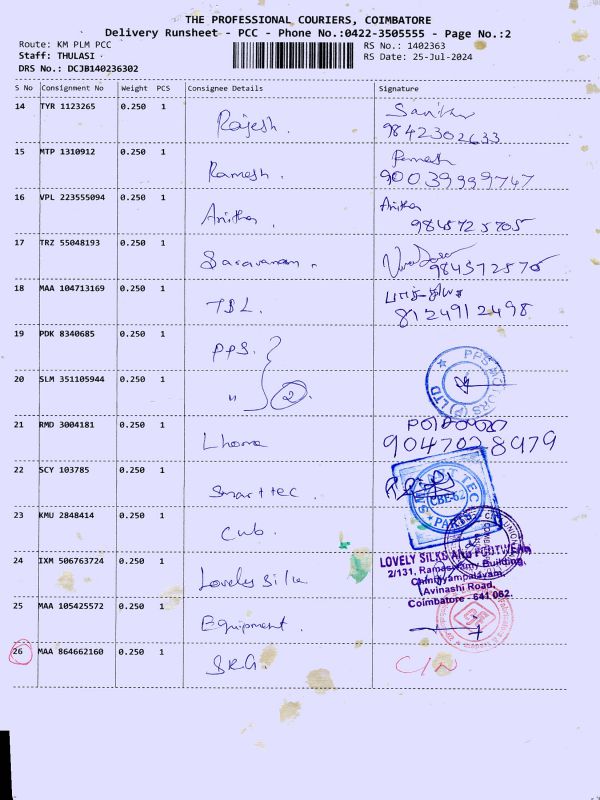 THE PROFESSIONAL COURIERS, COIMBATORE
Delivery Runsheet - PCC - Phone No.:0422-3505555 - Page No.:2
Route: KM PLM PCC
RS No.: 1402363
Staff: THULASI
RS Date: 25-Jul-2024
DRS No.: DCJB140236302
S No Consignment No Weight PCS Consignee Details Signature
14 TYR 1123265 0.250 1 Rajesh.
9842302633
15 MTP 1310912 0.250 1 Ramesh. Ramesh
90039999747
16 VPL 223555094 0.250 1 Anitha. Anitha
9845725705
17 TRZ 55048193 0.250 1 Saravanan.
18 MAA 104713169 0.250 1 TBL.
8124912498
19 PDK 8340685 0.250 1 PPS.
20 SLM 351105944 0.250 1 " 2
PPS MOTORS (P) LTD
21 RMD 3004181 0.250 1
9047028979
22 SCY 103785 0.250 1 Smart tec.
SMART TEC
CBE-62
PARTS
23 KMU 2848414 0.250 1 Cub.
24 IXM 506763724 0.250 1 Lovely Silks
LOVELY SILKS AND FOOTWEAR
2/131, Ramasamy Building,
Chinniyampalayam,
Avinashi Road,
Coimbatore - 641 062.
25 MAA 105425572 0.250 1 Equipment.
26 MAA 864662160 0.250 1 SRG.